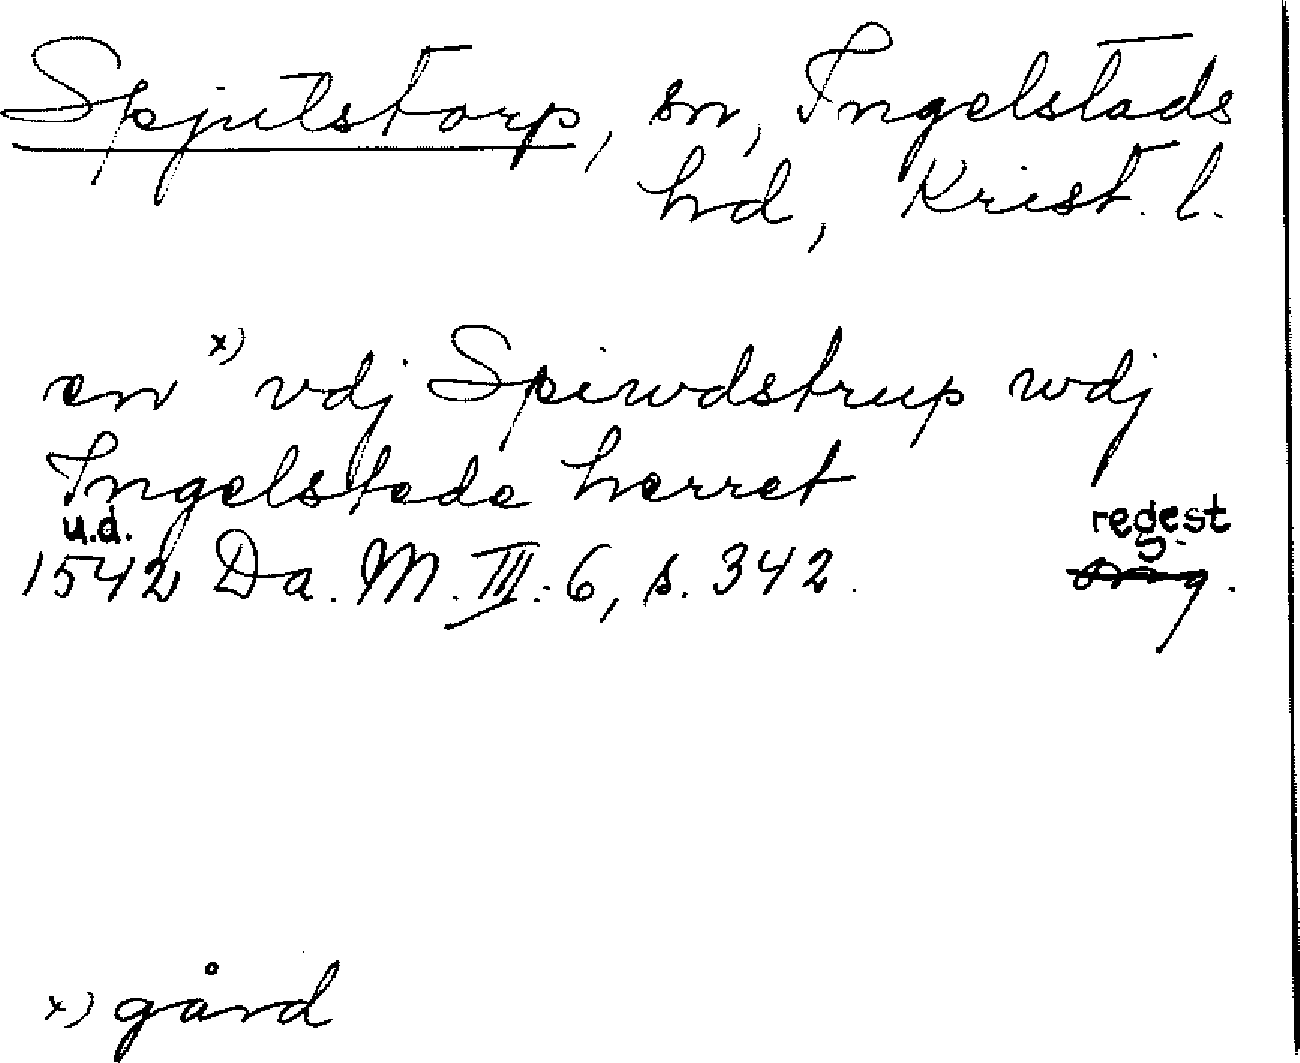 Spjutstorp, sn, Ingelstads
hd, Krist. l.
en x) vdj Spiwdstrup wdj
Ingelstede herret
u.d.
regest
1542 Da. M. III. 6, s. 342.
x) gård